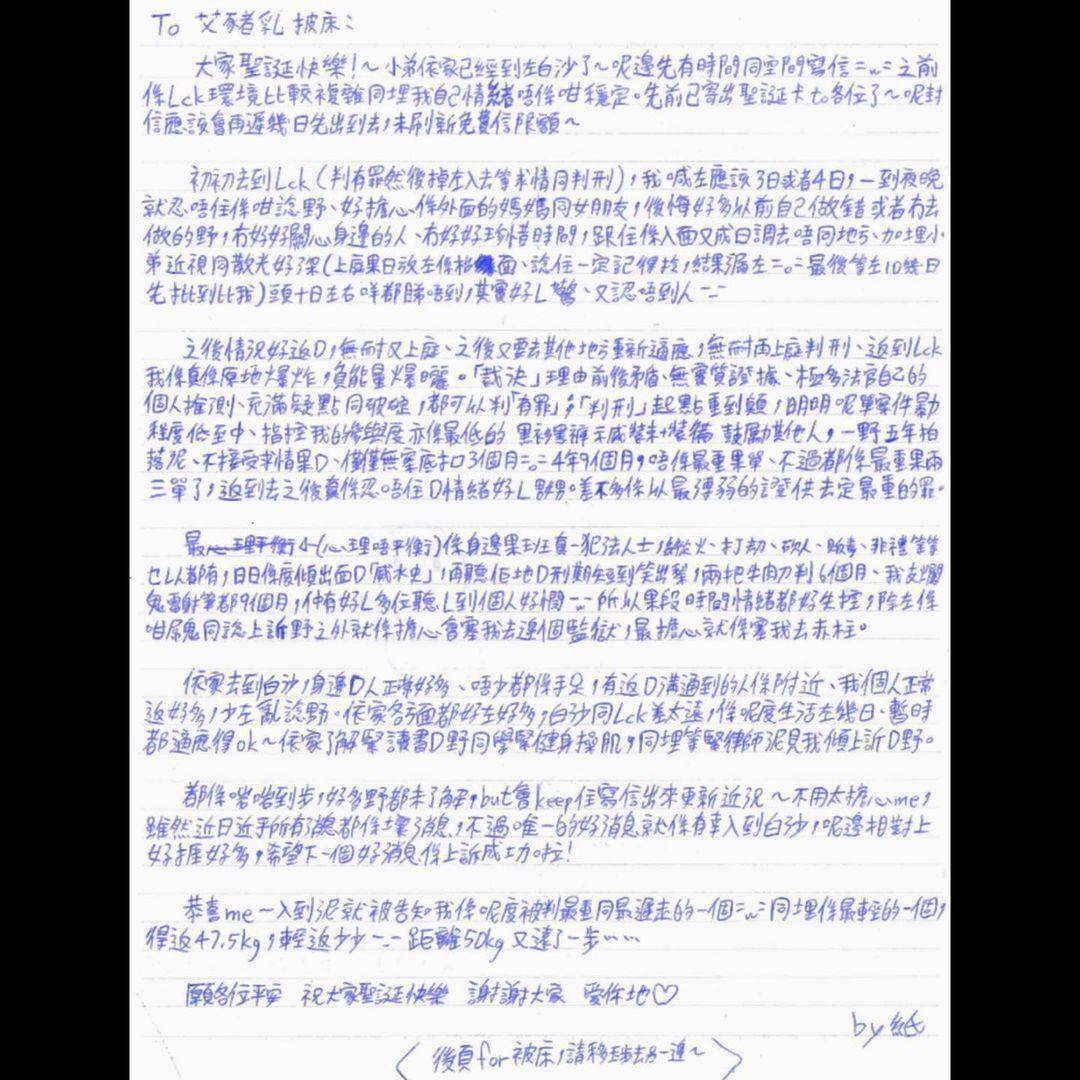 To 艾豬乳披床:
大家聖誕快樂!~小弟依家已經到左白沙了~呢邊先有時間同空間寫信=w=之前
係Lck環境比較複雜同埋我自己情緒唔係咁穩定。先前已寄出聖誕卡to各位了~呢封
信應該會再遲幾日先出到去,未刷新免費信限額~
初初去到Lck(判有罪然後掉左入去等求情同判刑),我喊左應該3日或者4日,一到夜晚
就忍唔住係咁諗野、好擔心係外面的媽媽同女朋友,後悔好多以前自己做錯或者冇去
做的野,冇好好關心身邊的人、冇好好珍惜時間,跟住係入面又成日調去唔同地方、加埋小
弟近視同散光好深(上庭果日放左係枱面、諗住一定記得拎,結果漏左=o=最後等左10幾日
先批到比我)頭十日左右咩都睇唔到,其實好L驚、又認唔到人-.-
之後情況好返D,無耐又上庭、之後又要去其他地方重新適應,無耐再上庭判刑、返到Lck
我係真係原地爆炸,負能量爆曬。「裁決」理由前後矛盾、無實質證據、極多法官自己的
個人推測、充滿疑點同破綻,都可以判「有罪」,「判刑」起點重到癲,明明呢單案件暴動
程度低至中、指控我的參與度亦係最低的 黑衫黑褲示威裝束+裝備 鼓勵其他人,一野五年拍
落泥、不接受求情果D、僅僅無案底扣3個月=o=4年9個月,唔係最重果單、不過都係最重果兩
三單了,返到去之後真係忍唔住D情緒好L嬲。差不多係以最薄弱的證供去定最重的罪。
最心理平衡(心理唔平衡)係身邊果班真·犯法人士,縱火、打劫、砍人、販毒、非禮等等
乜L人都有,日日係度傾出面D「威水史」,再聽佢地D刑期短到笑出聲,兩把牛肉刀判6個月、我支爛
鬼雷射筆都9個月,仲有好L多位聽L到個人好憫-w-所以果段時間情緒都好失控,除左係
咁屌鬼同諗上訴野之外就係擔心會塞我去邊個監獄,最擔心就係塞我去赤柱。
依家去到白沙,身邊D人正常好多、唔少都係手足,有返D溝通到的人係附近、我個人正常
返好多,少左亂諗野。依家各方面都好左好多,白沙同Lck差太遠,係呢度生活左幾日、暫時
都適應得ok~依家了解緊讀書D野同學緊健身操肌,同埋等緊律師泥見我傾上訴D野。
都係啱啱到步,好多野都未了解,but會keep住寫信出來更新近況~不用太擔心me,
雖然近日近乎所有消息都係壞消息,不過唯一的好消息就係有幸入到白沙,呢邊相對上
好捱好多,希望下一個好消息係上訴成功啦!
恭喜me一入到泥就被告知我係呢度被判最重同最遲走的一個=w=同埋係最輕的一個,
得返47.5kg,輕返少少-.-距離50kg又遠了一步……
願各位平安 祝大家聖誕快樂 謝謝大家 愛你地♡
by紙
〈後頁for被床,請移玉步去另一邊~〉